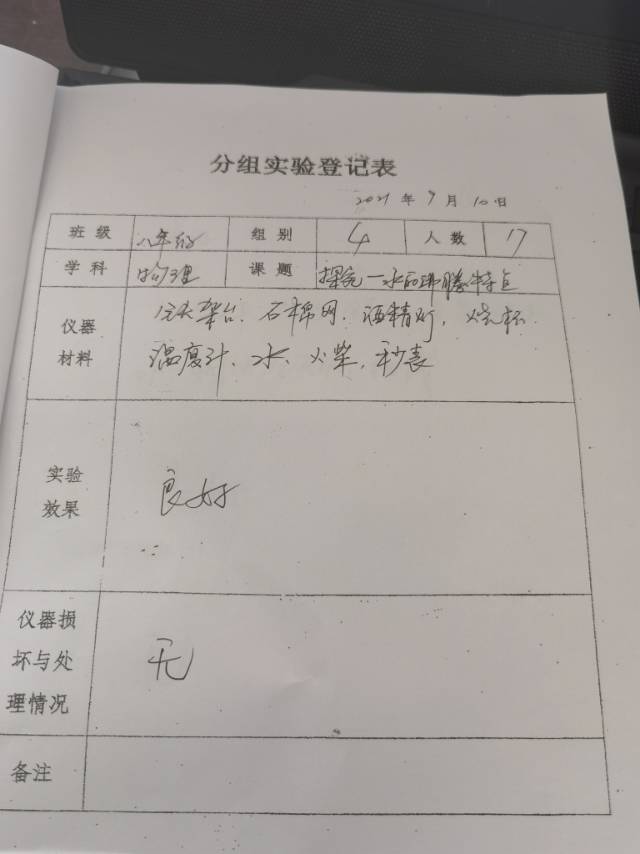 分组实验登记表
2021 年 9 月 10 日
班级 八年级 组别 4 人数 17
学科 物理 课题 探究—水的沸腾特点
仪器材料 铁架台、石棉网、酒精灯、烧杯
温度计、水、火柴、秒表
实验效果 良好
仪器损坏与处理情况 无
备注